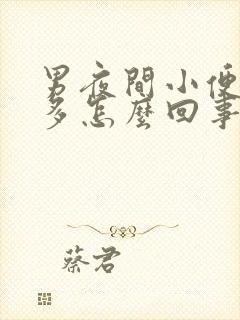 男夜間小便
多怎麼回事
蔡君